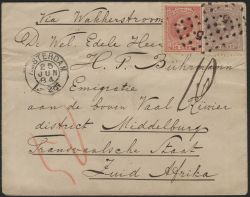 Via Wakkerstroom
De Wel. Edele Heer
H. P. Bührmann
Emigratie
aan de boven Vaal Rivier
district Middelburg
Transvaalsche Staat
Zuid Afrika
AMSTERDAM
25
JUN
84